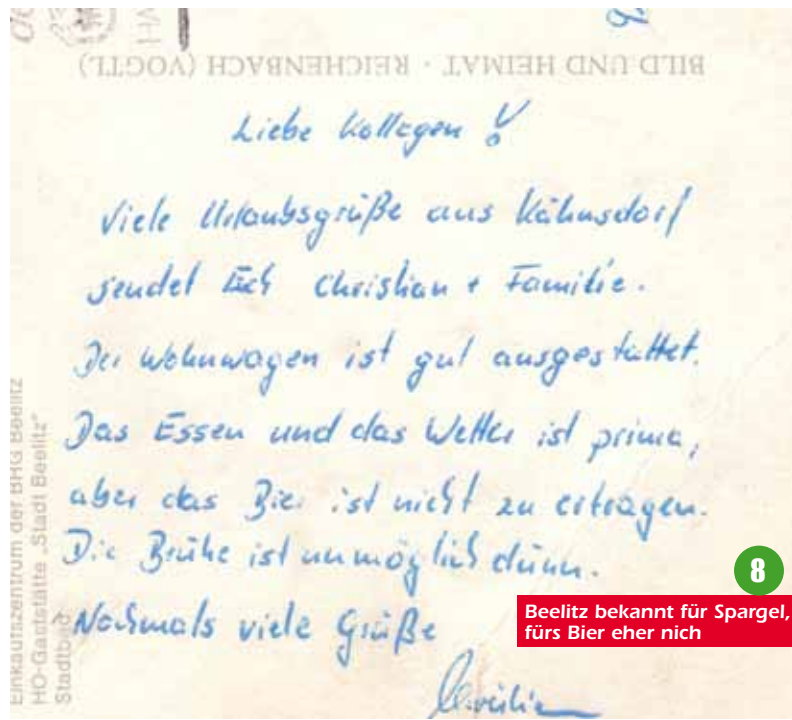 BILD UND HEIMAT · REICHENBACH (VOGTL)
Liebe Kollegen!
Viele Urlaubsgrüße aus Kähnsdorf
sendet Euch Christian + Familie.
Der Wohnwagen ist gut ausgestattet.
Das Essen und das Wetter ist prima,
aber das Bier ist nicht zu ertragen.
Die Brühe ist unmöglich dünn.
Nochmals viele Grüße
Christian
Einkaufszentrum der BHG Beelitz
HO-Gaststätte „Stadt Beelitz"
Stadtbad
8
Beelitz bekannt für Spargel,
fürs Bier eher nich